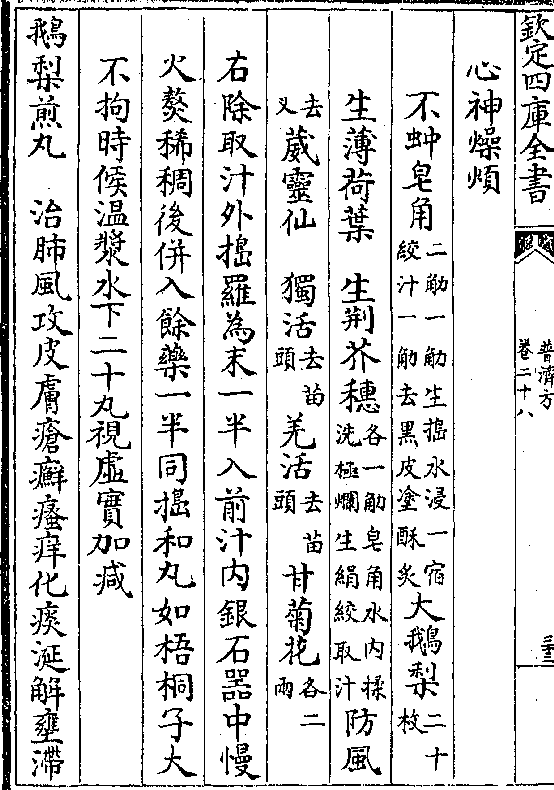 欽定四庫全書
普濟方
卷二十八
心神燥煩
不蚛皂角二觔一觔生搗水浸一宿絞汁一觔去黑皮塗酥炙大鵝梨二十枚
生薄荷葉 生荆芥穗各一觔皂角水内揉洗極爛生絹絞取汁防風
去叉葳靈仙 獨活去苗頭羌活去苗頭甘菊花各二兩
右除取汁外搗羅為末一半入前汁内銀石器中慢
火熬稀稠後併入餘藥一半同搗和丸如梧桐子大
不拘時候温漿水下二十丸視虚實加減
鵝梨煎丸 治肺風攻皮膚瘡癬瘙痒化痰涎解壅滯